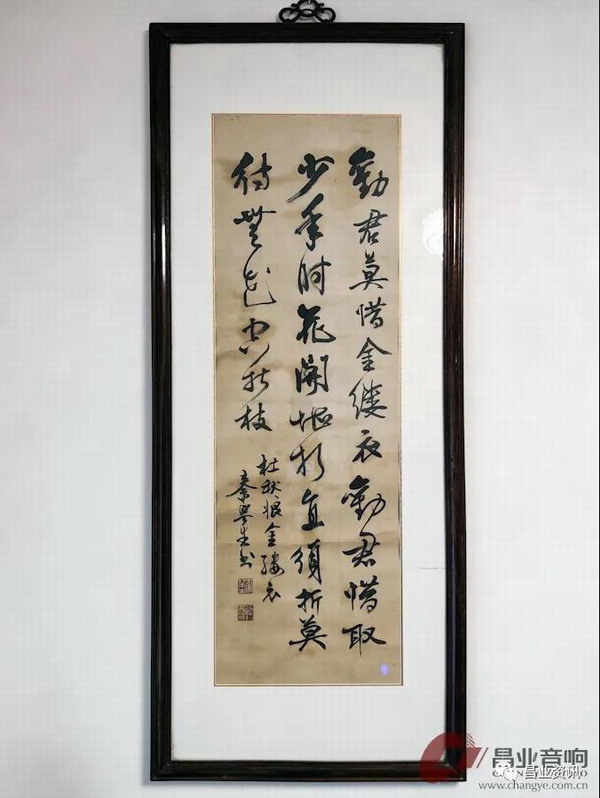 勸君莫惜金縷衣勸君惜取
少年時花開堪折直須折莫
待無花空折枝
杜秋娘金縷衣
秦咢生書
昌业音响
昌业资讯
www.changye.com